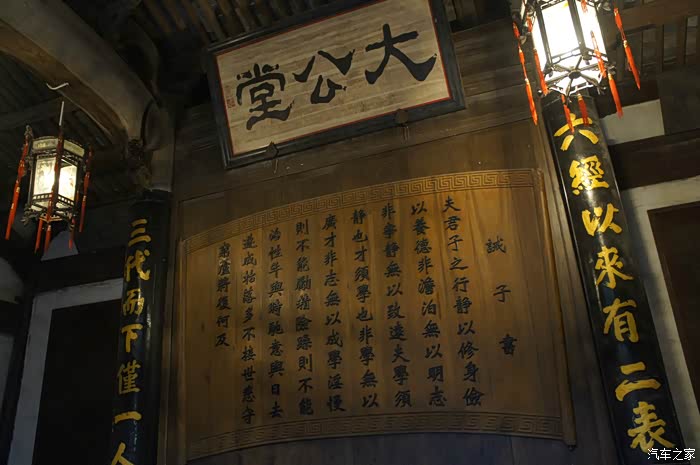 大公堂
六經以來有二表
誡子書
夫君子之行靜以修身儉
以養德非澹泊無以明志
非寧靜無以致遠夫學須
靜也才須學也非學無以
廣才非志無以成學淫慢
則不能勵精險躁則不能
治性年與時馳意與日去
遂成枯落多不接世悲守
窮廬將復何及
三代而下僅一人
汽车之家